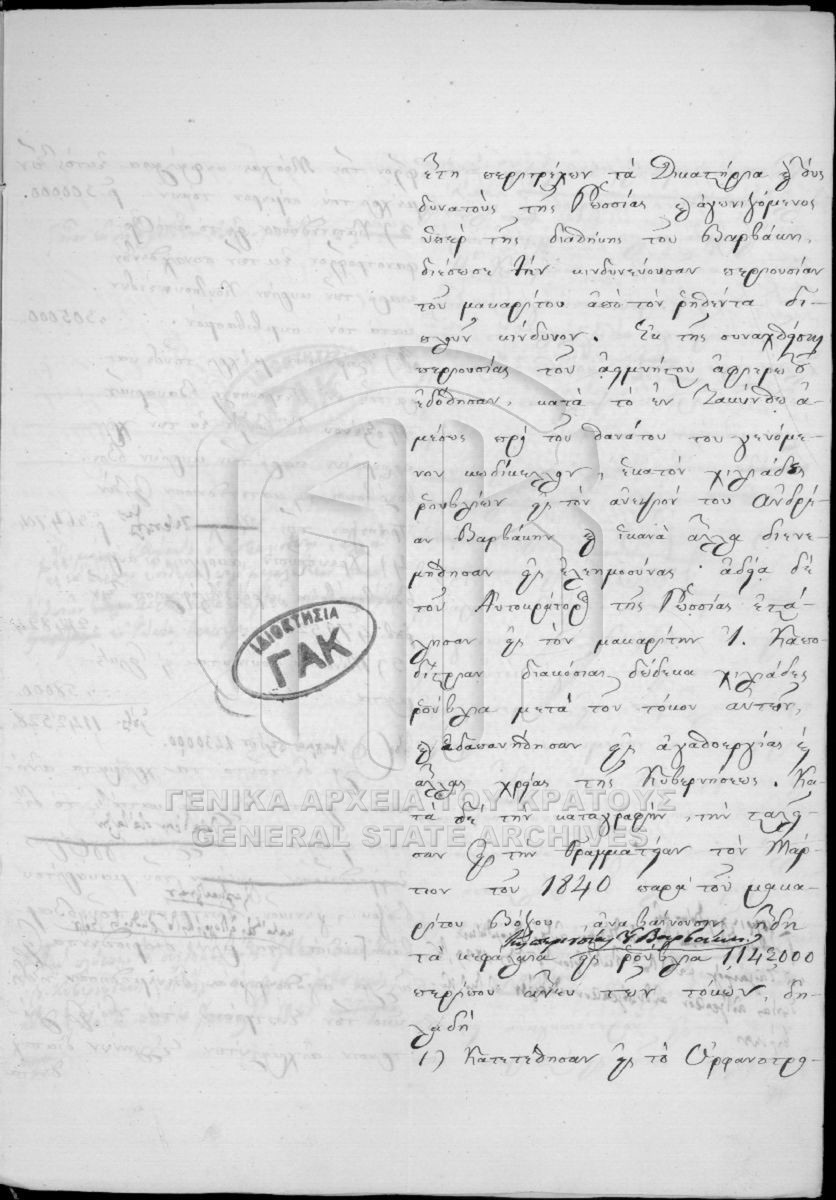 ἔτη περιτρέχων τὰ Δικαστήρια καὶ τοὺς
δυνατοὺς τῆς Ῥωσσίας καὶ ἀγωνιζόμενος
ὑπὲρ τῆς διαθήκης τοῦ Βαρβάκη,
διέσωσε τὴν κινδυνεύουσαν περιουσίαν
τοῦ μακαρίτου ἀπὸ τὸν ῥηθέντα δι-
πλοῦν κίνδυνον. Ἐκ τῆς συναχθείσης
περιουσίας τοῦ ἀειμνήτου
ἐδόθησαν, κατὰ τὸ ἐν Ζακύνθῳ ἀ-
μέσως πρὸ τοῦ θανάτου του γενόμε-
νον κωδίκελλον, ἑκατὸν χιλιάδες
ῥουβλίων εἰς τὸν ἀνεψιόν του Ἀνδρέ-
αν Βαρβάκην καὶ ἱκανὰ ἄλλα διενε-
μήθησαν εἰς ἐλεημοσύνας· ἀδείᾳ δὲ
τοῦ Αὐτοκράτορος τῆς Ῥωσσίας ἐστά-
λησαν εἰς τὸν μακαρίτην Ἰ. Καπο-
δίστριαν διακόσιαι δώδεκα χιλιάδες
ῥούβλια μετὰ τοῦ τόκου αὐτῶν,
καὶ ἐδαπανήθησαν εἰς ἀγαθοεργίας καὶ
ἄλλας χρείας τῆς Κυβερνήσεως. Κα-
τὰ δὲ τὴν καταγραφὴν, τὴν σταλεῖ-
σαν εἰς τὴν Γραμματείαν τὸν Μάρ-
τιον τοῦ 1840 παρὰ τοῦ μακα-
ρίτου Βόξου, ἀναβαίνουσιν ἤδη
τῆς περιουσίας τοῦ Βαρβάκη
τὰ κεφάλαια εἰς ῥούβλια 1142000
περίπου ἄνευ τῶν τόκων, δη-
λαδή
1) Κατετέθησαν εἰς τὸ Ὀρφανοτρο-
ΙΔΙΟΚΤΗΣΙΑ
ΓΑΚ
ΓΕΝΙΚΑ ΑΡΧΕΙΑ ΤΟΥ ΚΡΑΤΟΥΣ
GENERAL STATE ARCHIVES